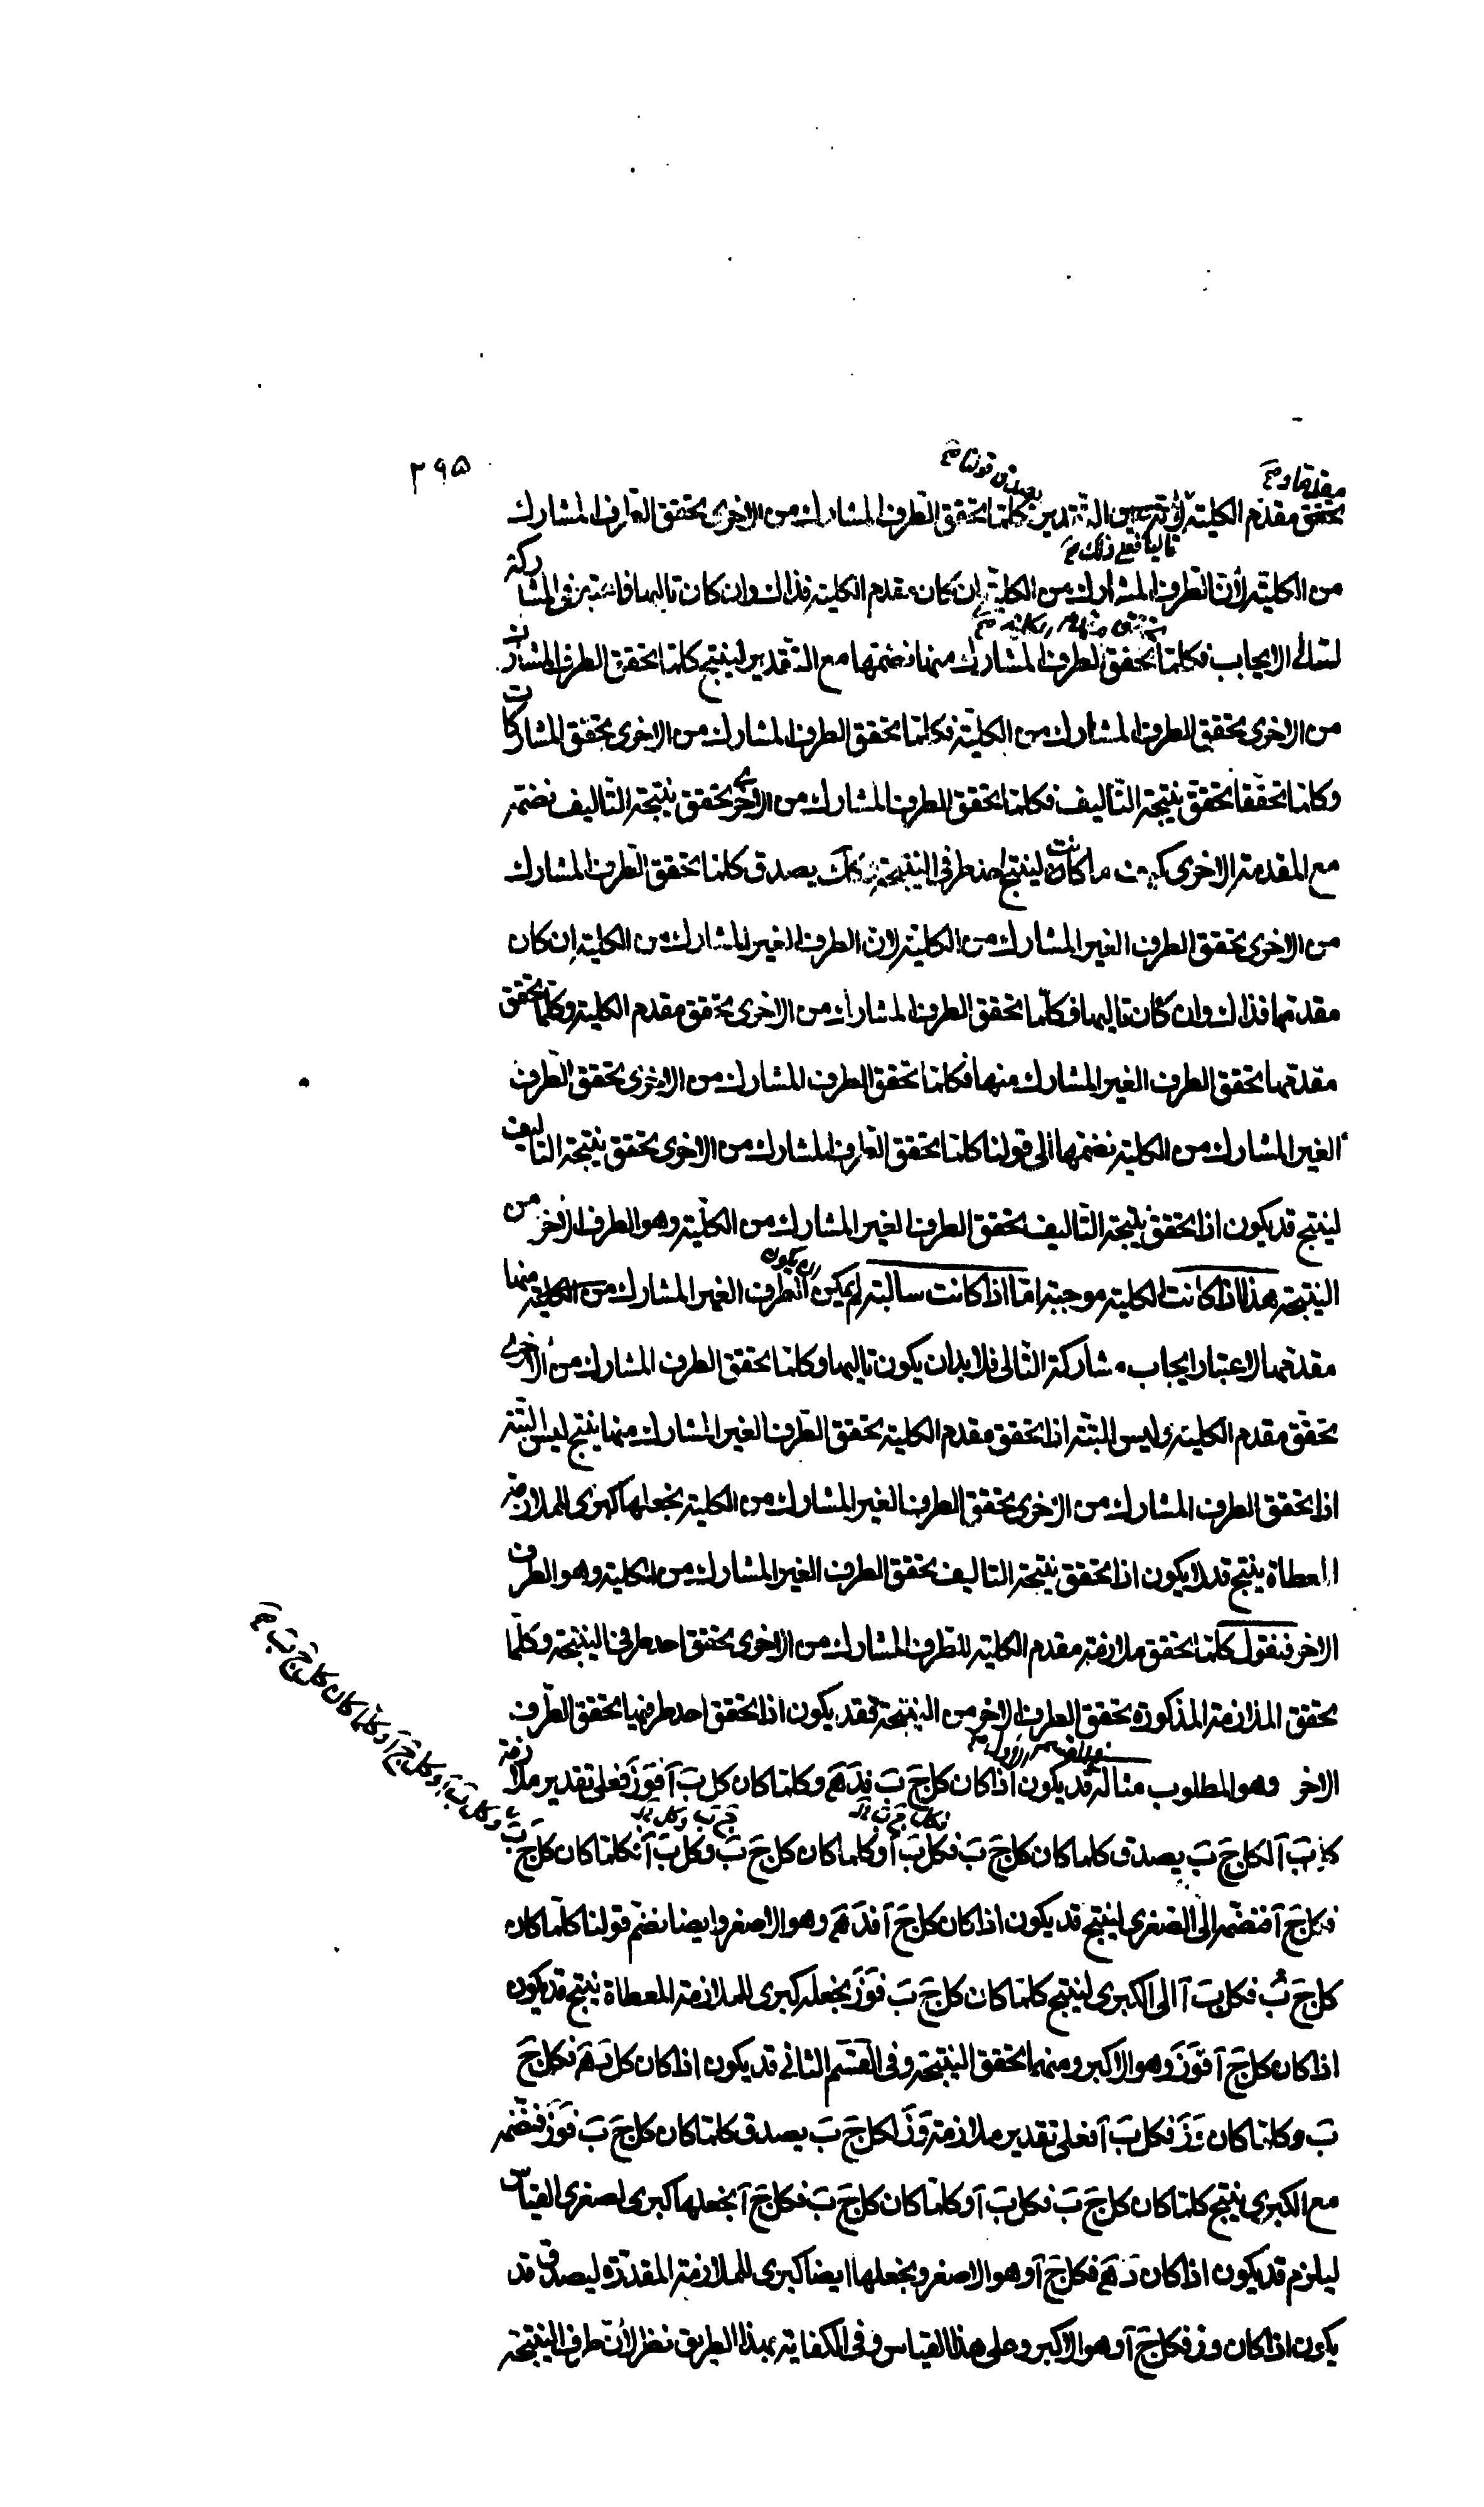 ٢٩٥
تحقق مقدم الكلية التقدير كلما تحقق الطرف المشارك من الاخرى تحقق الطرف المشارك
من الكلية لأن الطرف المشارك من الكلية إن كان مقدم الكلية فذاك وان كان تاليها فالمعتبر في المشاركة
لتالى الايجاب فكلما تحقق الطرف المشارك منها نضمها مع التقدير لينتج كلما تحقق الطرف المشارك
من الاخرى تحقق الطرف المشارك من الكلية فكلما تحقق الطرف المشارك من الاخرى تحقق المشاركات
وكلما تحققا تحقق نتيجة التاليف فكلما تحقق الطرف المشارك من الاخرى تحقق نتيجة التاليف نضمه
مع المقدمة الاخرى كيف ما كانت لينتج احد طرفى النتيجة كك يصدق كلما تحقق الطرف المشارك
من الاخرى تحقق الطرف الغير المشارك من الكلية لان الطرف الغير المشارك من الكلية ان كان
مقدمها فذاك وان كان تاليها فكلما تحقق الطرف المشارك من الاخرى تحقق مقدم الكلية وكلما تحقق
مقدمها تحقق الطرف الغير المشارك منها فكلما تحقق الطرف المشارك من الاخرى تحقق الطرف
الغير المشارك من الكلية نضمها الى قولنا كلما تحقق الطرف المشارك من الاخرى تحقق نتيجة التاليف
لينتج قد يكون اذا تحقق نتيجة التاليف تحقق الطرف الغير المشارك من الكلية وهو الطرف الاخر من
النتيجة هذا اذا كانت الكلية موجبة اما اذا كانت سالبة لم يكن ان يكون الطرف الغير المشارك منها
مقدمها لاعتبار ايجاب مشاركة التالى فلا بد ان يكون تاليها وكلما تحقق الطرف المشارك من الاخرى
تحقق مقدم الكلية وليس البتة اذا تحقق مقدم الكلية تحقق الطرف الغير المشارك منها ينتج ليس البتة
اذا تحقق الطرف المشارك من الاخرى تحقق الطرف الغير المشارك من الكلية نجعلها كبرى للملازمة
المعطاة ينتج قد لا يكون اذا تحقق نتيجة التاليف تحقق الطرف الغير المشارك من الكلية وهو الطرف
الاخر فنقول كلما تحقق ملازمة مقدم الكلية للطرف المشارك من الاخرى تحقق احد طرفى النتيجة وكلما
تحقق الملازمة المذكورة تحقق الطرف الاخر من النتيجة فقد يكون اذا تحقق احد طرفيها تحقق الطرف
الاخر وهو المطلوب مثاله قد يكون اذا كان كل ج ب فد ه وكلما كان كل ب آ فو ز فعلى تقدير ملازمة
كل ب آ لكل ج ب يصدق كلما كان كل ج ب فكل ب آ وكلما كان كل ج ب وكل ب آ فكلما كان كل ج ب
فكل ج آ فنضمه الى الصغرى لينتج قد يكون اذا كان كل ج آ فد ه وهو الاصغر وايضا نضم قولنا كلما كان
كل ج ب فكل ب آ الى الكبرى لينتج كلما كان كل ج ب فو ز نجعله كبرى للملازمة المعطاة ينتج قد يكون
اذا كان كل ج آ فو ز وهو الاكبر ومنهما تحقق النتيجة وفى القسم الثانى قد يكون اذا كان كل د ه فكل ج
ب وكلما كان و ز فكل ب آ فعلى تقدير ملازمة و ز لكل ج ب يصدق كلما كان كل ج ب فو ز فنضمه
مع الكبرى ينتج كلما كان كل ج ب فكل ب آ وكلما كان كل ج ب فكل ج آ نجعلها كبرى لصغرى القياس
ليلزم قد يكون اذا كان د ه فكل ج آ وهو الاصغر ونجعلها ايضا كبرى للملازمة المقدرة ليصدق قد
يكون اذا كان و ز فكل ج آ وهو الاكبر وعلى هذا القياس وفى الكفاية بهذا الطريق نظر لأن طرف النتيجة